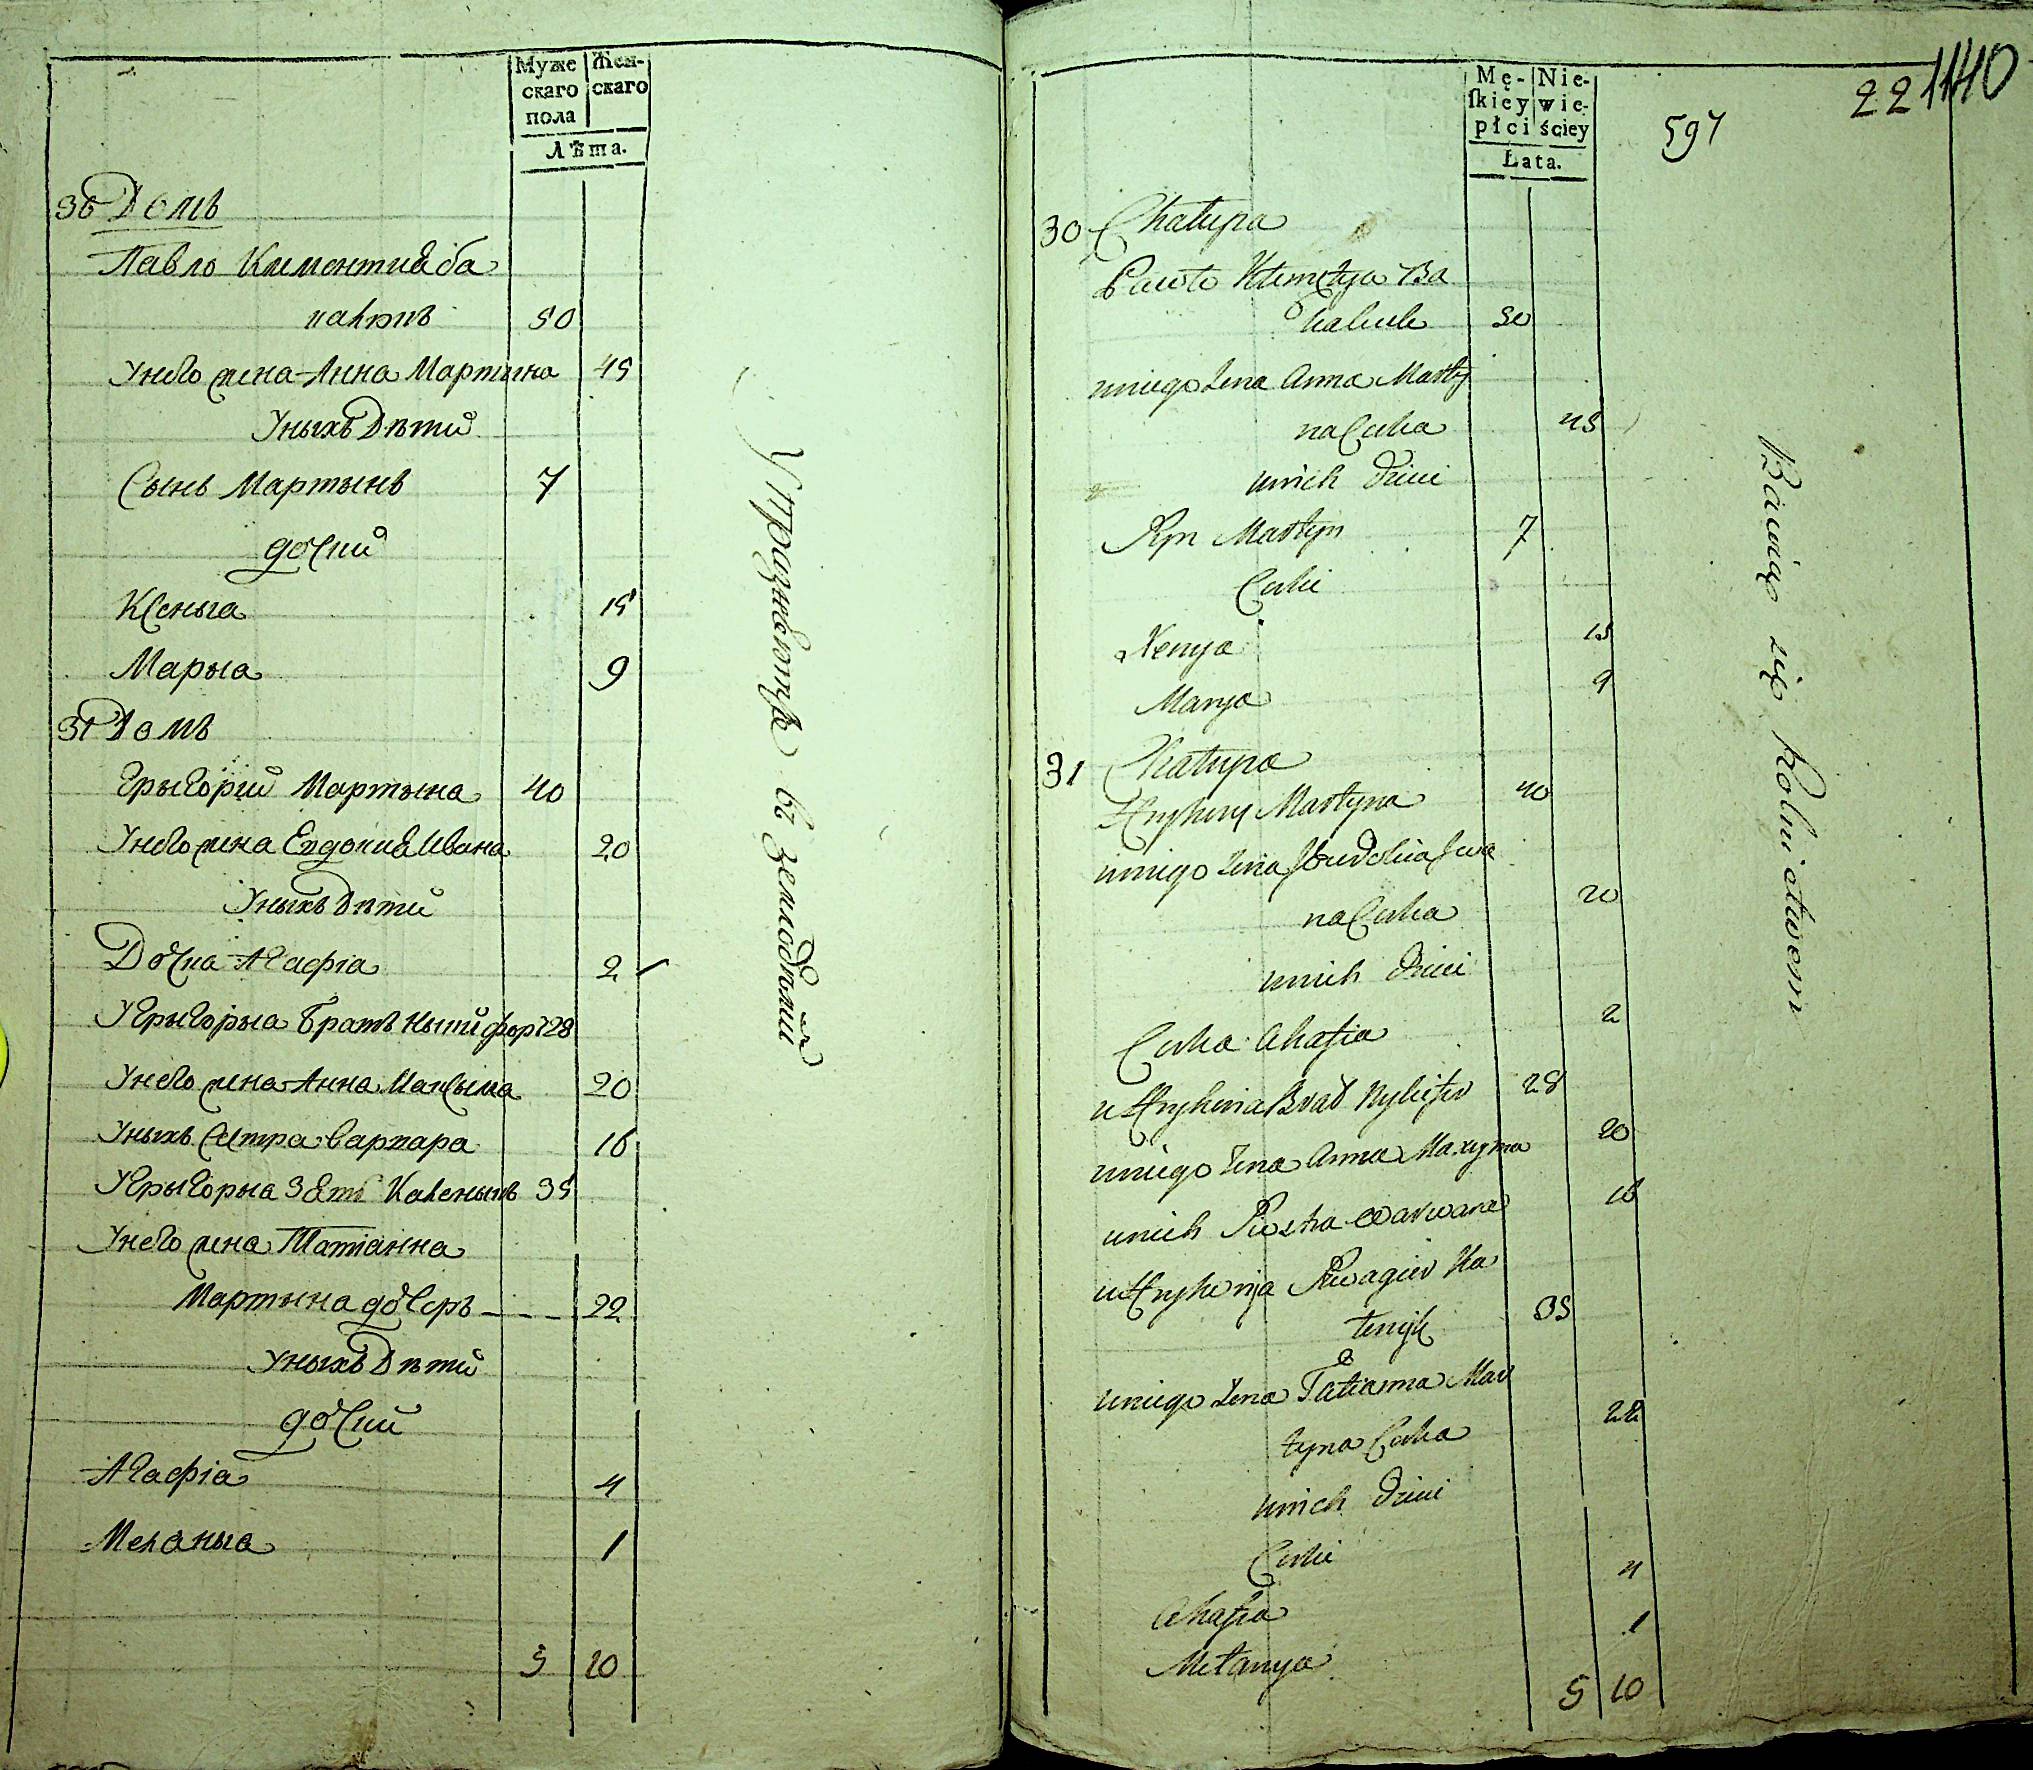 Муже
скаго
пола
Жен-
скаго
Лѣта.
30 Домъ
Павло Климентия ба
50
Унего жена Анна Мартына 45
Уныхъ Дѣти
Сынъ Мартынъ 7
дочки
Ксеныа 15
Марыа 9
31 Домъ
Грыгорий Мартына 40
Унего жена Евдокия Ивана 20
Уныхъ Дѣти
Дочка Агафіа 2
Угрыгорыа Братъ Ныкифоръ 28
Унего жена Анна Максыма 20
Уныхъ Сестра Варвара 16
Угрыгорыа Зять Каленыкъ 35
Унего жена Татіанна
Мартына дочеръ 22
Уныхъ Дѣти
дочки
Агафіа 4
Меланыа 1
5 10
Упражняются въ земледѣлии
221140
597
Mę-
skiey
płci
Nie-
wie-
ściey
Lata.
30 Chałupa
Pawło Klemętya Ba
30
uniego żena Anna Marty
na Curka 45
unich Dzieci
Syn Martyn 7
Curki
Xenya 15
Marya 9
31 Chałupa
Hryhory Martyna 40
uniego żena Iewdokia Iwa
na Curka 20
unich Dzieci
Curka Ahafia 2
u Hryhoria Brat Nykifor 28
uniego żena Anna Maxyma 20
unich Siostra Warwara 16
u Hryhorija Szwagier Ka
lenyk 35
uniego żena Tatianna Mar
tyna Curka 22
unich Dzieci
Curki
Ahafia 4
Mełanya 1
5 10
Bawiąc się Rolnictwem